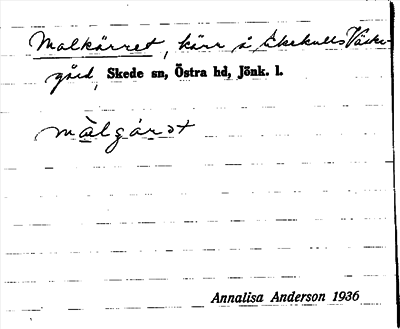 Malkärret, kärr å Ekekulls Väster-
gård, Skede sn, Östra hd, Jönk. l.
Annalisa Anderson 1936